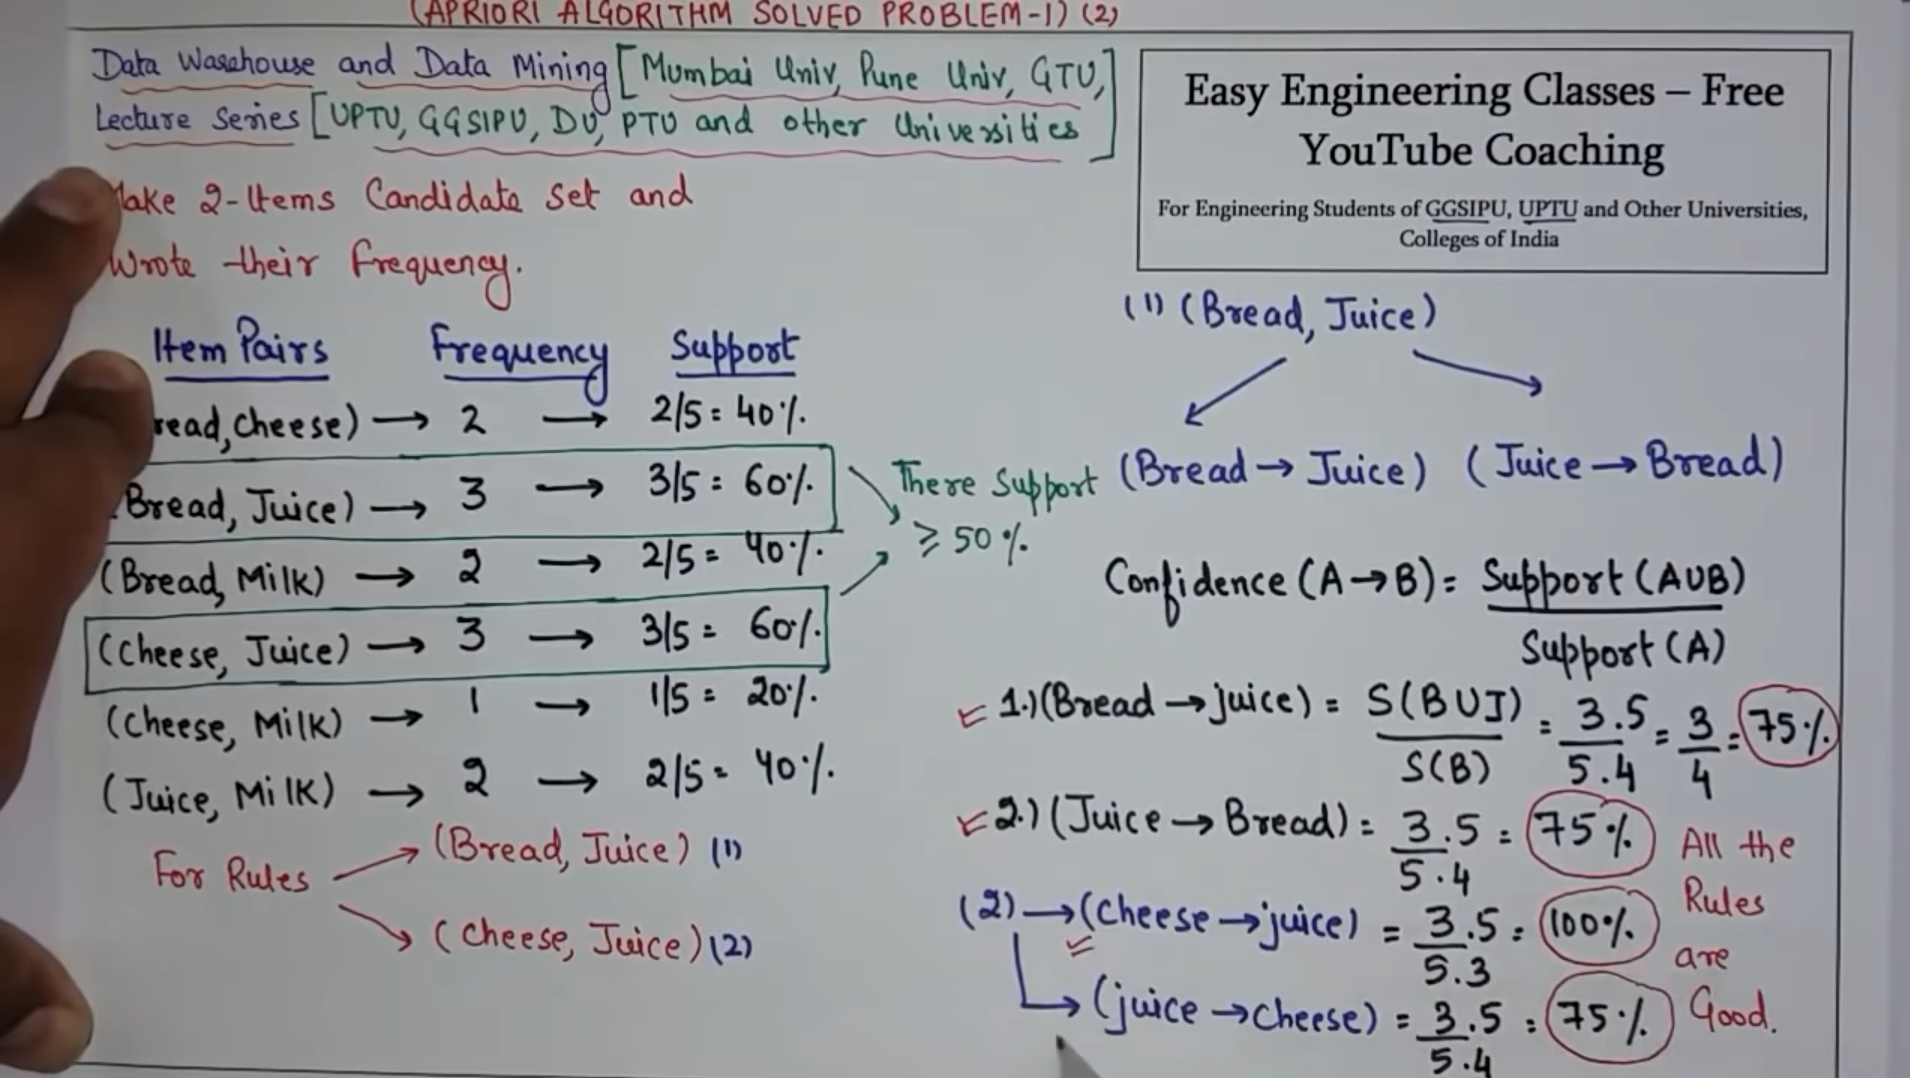 (APRIORI ALGORITHM SOLVED PROBLEM-1) (2)
Data Warehouse and Data Mining [Mumbai Univ, Pune Univ, GTU,
Lecture Series [UPTU, GGSIPU, DU, PTU and other Universities]
Easy Engineering Classes – Free
YouTube Coaching
For Engineering Students of GGSIPU, UPTU and Other Universities,
Colleges of India
Make 2-Items Candidate Set and
Wrote their frequency.
Item Pairs Frequency Support
read, Cheese) → 2 → 2/5 = 40%.
Bread, Juice) → 3 → 3/5 = 60%.
(Bread, Milk) → 2 → 2/5 = 40%.
(Cheese, Juice) → 3 → 3/5 = 60%.
(Cheese, Milk) → 1 → 1/5 = 20%.
(Juice, Milk) → 2 → 2/5 = 40%.
There Support
≥ 50%.
For Rules
(Bread, Juice) (1)
(Cheese, Juice) (2)
(1) (Bread, Juice)
(Bread → Juice) (Juice → Bread)
Confidence (A → B) = Support (A∪B)
Support (A)
1.) (Bread → juice) = S(B∪J) = 3.5 = 3 = 75%.
S(B) 5.4 4
2.) (Juice → Bread) = 3.5 = 75%.
5.4
(2) → (Cheese → juice) = 3.5 = 100%.
5.3
→ (juice → Cheese) = 3.5 = 75%.
5.4
All the
Rules
are
Good.